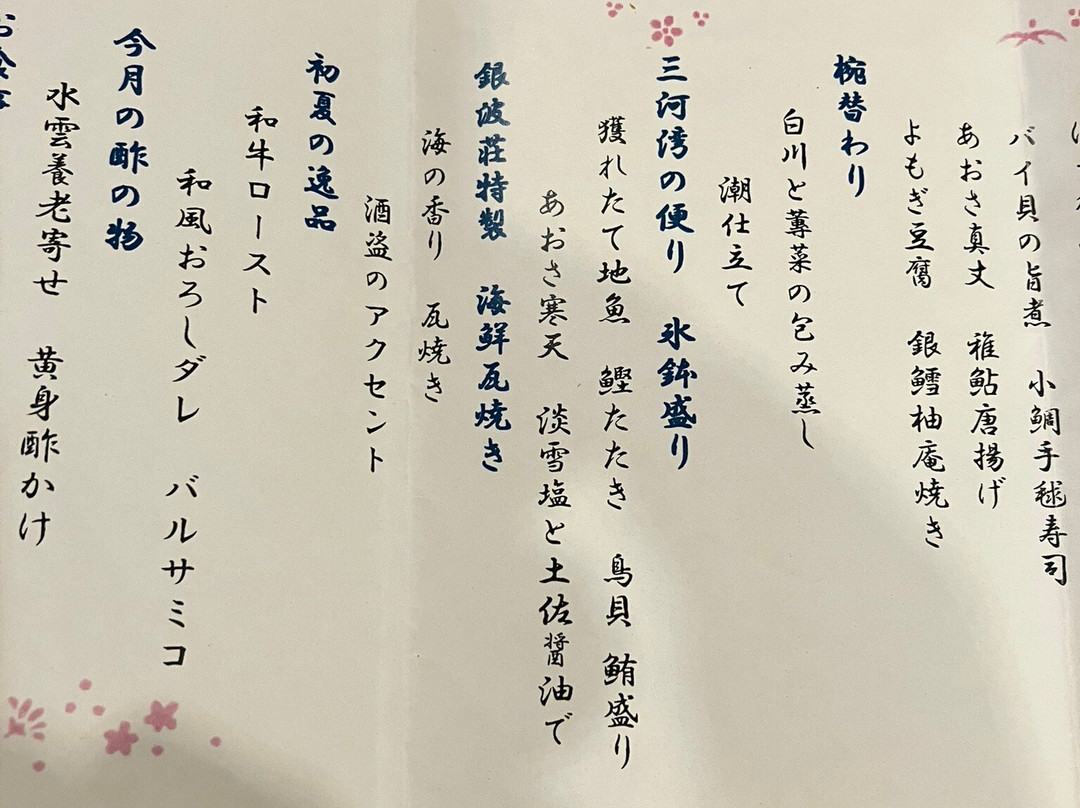 バイ貝の旨煮　小鯛手毬寿司
あおさ真丈　稚鮎唐揚げ
よもぎ豆腐　銀鱈柚庵焼き
椀替わり
白川と蓴菜の包み蒸し
潮仕立て
三河湾の便り　氷鉢盛り
獲れたて地魚　鰹たたき　鳥貝　鮪盛り
あおさ寒天　淡雪塩と土佐醤油で
銀波荘特製　海鮮瓦焼き
海の香り　瓦焼き
酒盗のアクセント
初夏の逸品
和牛ロースト
和風おろしダレ　バルサミコ
今月の酢の物
水雲養老寄せ　黄身酢かけ